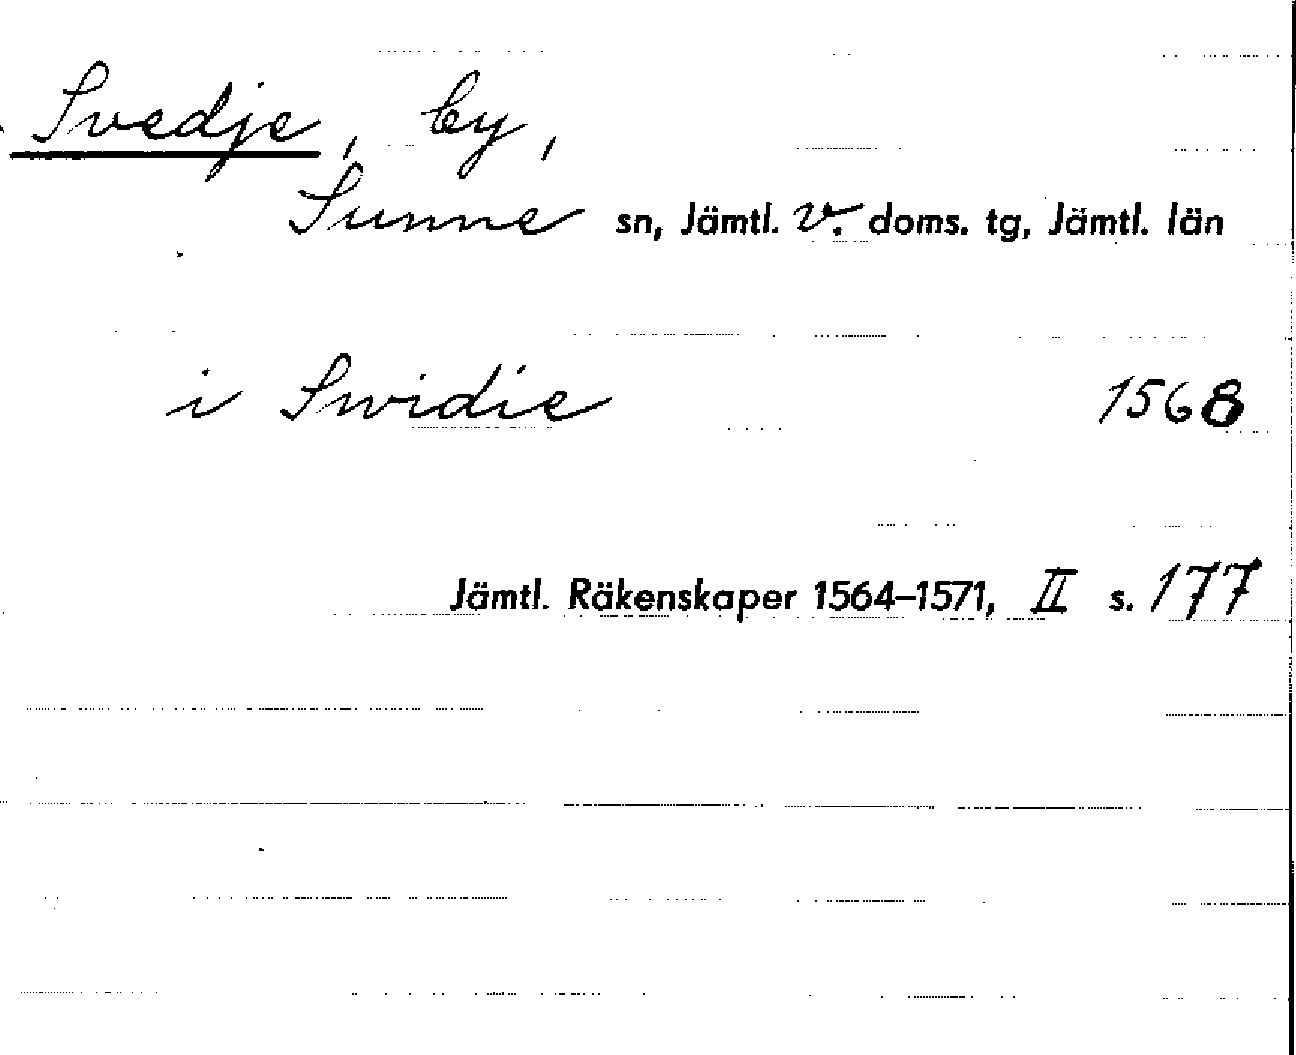 Svedje, by,
Sunne sn, Jämtl. v. doms. tg, Jämtl. län
i Swidie 1568
Jämtl. Räkenskaper 1564–1571, II s. 177